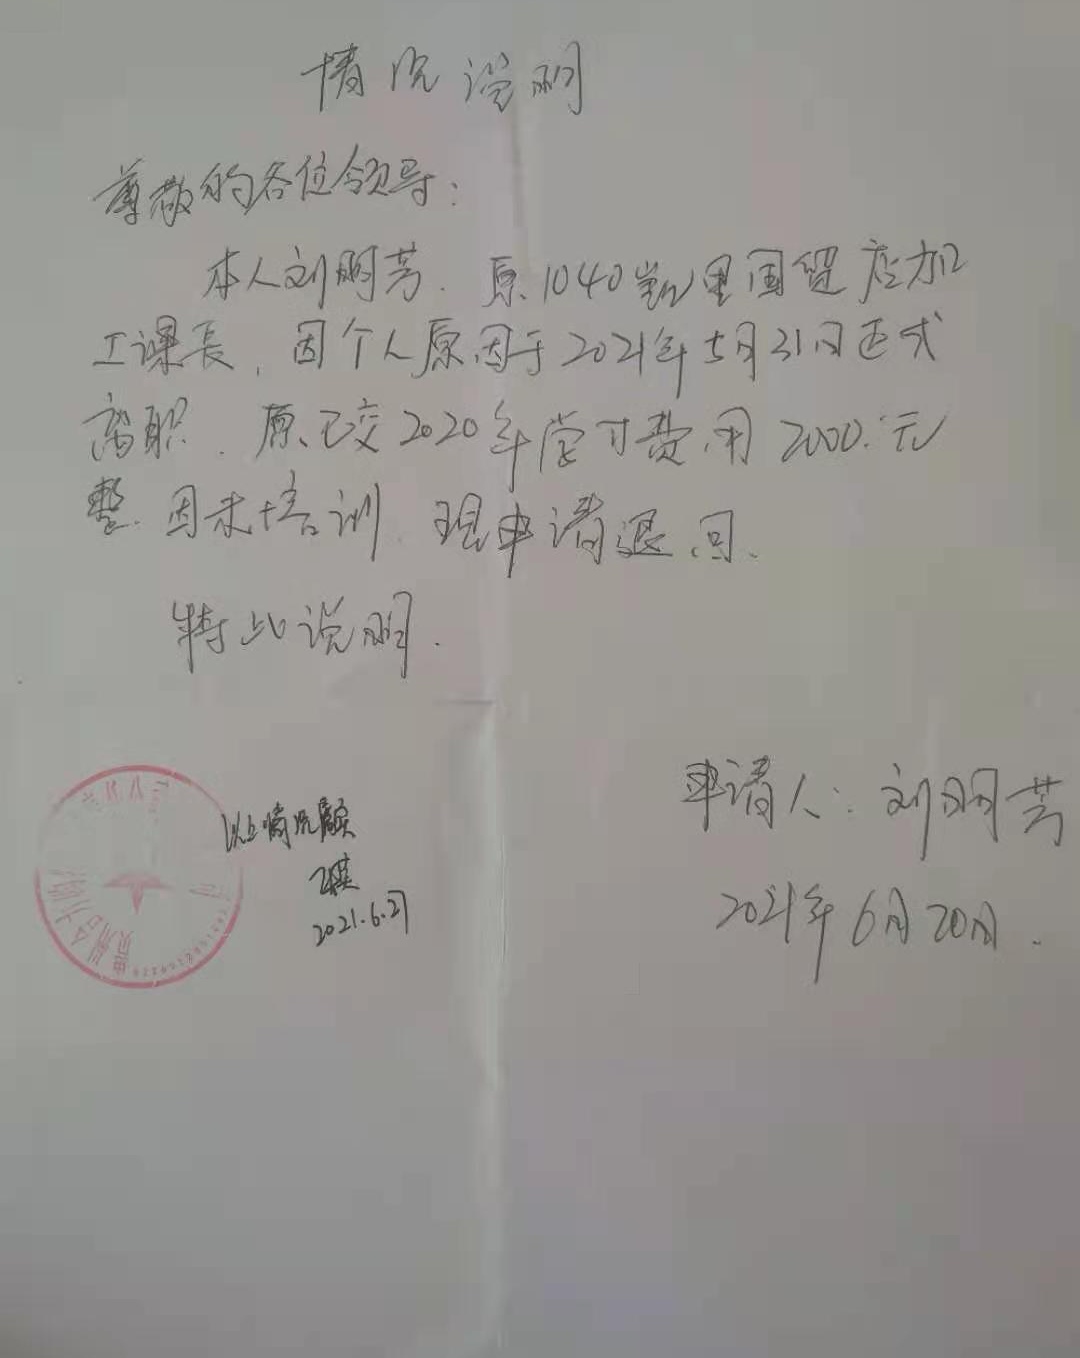 情况说明
尊敬的各位领导:
本人刘明芳. 原1040 里国贸店加
工课长, 因个人原因于2021年5月31日正式
离职. 原已交2020年学习费用2000.元
整. 因未培训. 现申请退回.
特此说明.
申请人: 刘明芳
2021年6月20日.
以上情况属实
2021.6.27